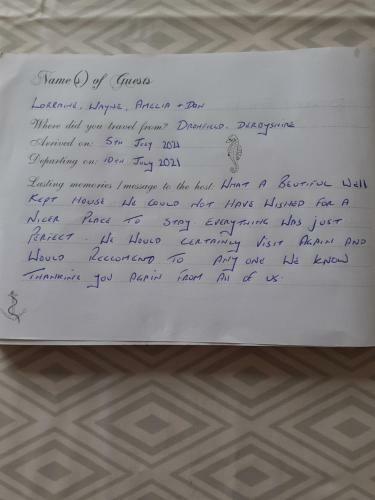 Name(s) of Guests
LORRAINE, WAYNE, AMELIA + DAN
Where did you travel from? DRONFIELD. DERBYSHIRE
Arrived on: 5TH JULY 2021
Departing on: 10TH JULY 2021
Lasting memories / message to the host: WHAT A BEUTIFUL WELL
KEPT HOUSE WE COULD NOT HAVE WISHED FOR A
NICER PLACE TO STAY EVERYTHING WAS JUST
PERFECT. WE WOULD CERTAINLY VISIT AGAIN AND
WOULD RECCOMEND TO ANY ONE WE KNOW
THANKING YOU AGAIN FROM All OF US.